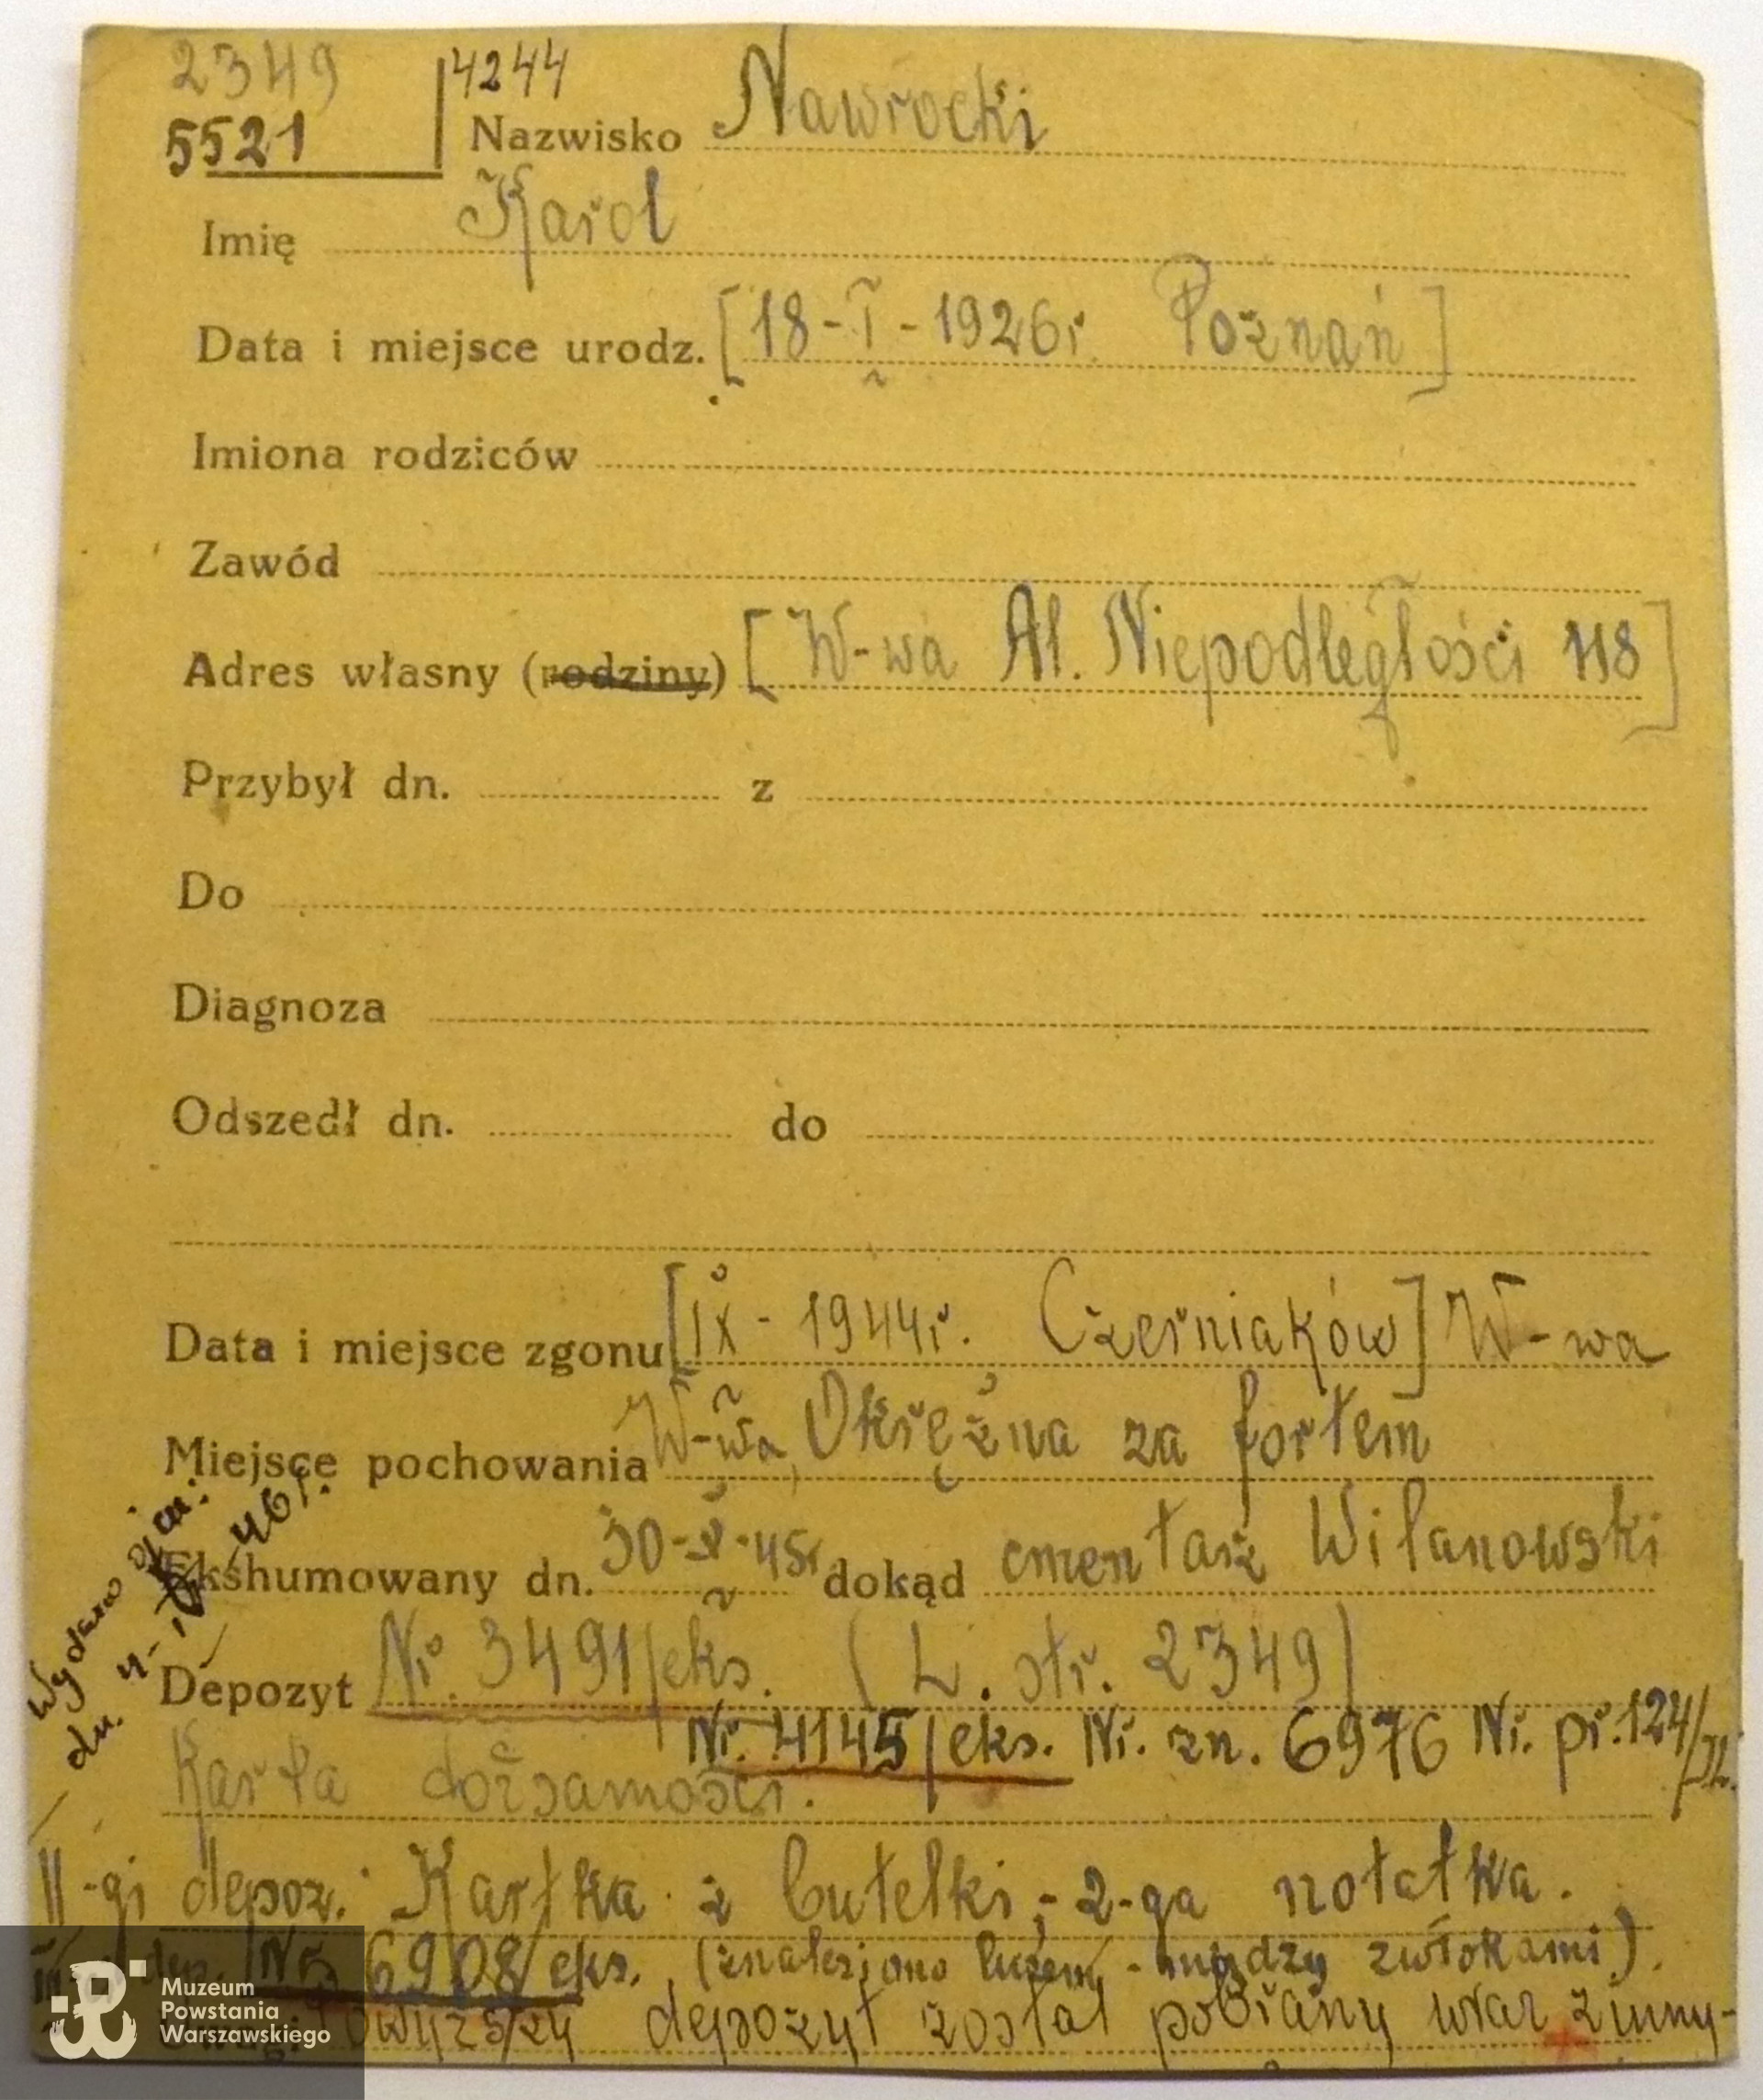 2349
5521
4244
Nazwisko Nawrocki
Imię Karol
Data i miejsce urodz. [18-I-1926r. Poznań]
Imiona rodziców
Zawód
Adres własny (rodziny) [W-wa Al. Niepodległości 118]
Przybył dn. z
Do
Diagnoza
Odszedł dn. do
Data i miejsce zgonu [IX-1944r. Czerniaków] W-wa
Miejsce pochowania W-wa, Okrężna za fortem
Ekshumowany dn. 30-X-45r dokąd cmentarz Wilanowski
Wydano ojcu:
dn. 4- -46r.
Depozyt Nr. 3491/eks. (L. str. 2349)
Nr. 4145/eks. Nr. zn. 6976 Nr. pr. 124/
Karta tożsamości.
II-gi depoz. Kartka z butelki; - 2-ga notatka.
III dep. Nr 6908/eks. (znaleziono luzem - między zwłokami).
Uwagi Powyższy depozyt został pobrany wraz z inny-
Muzeum
Powstania
Warszawskiego